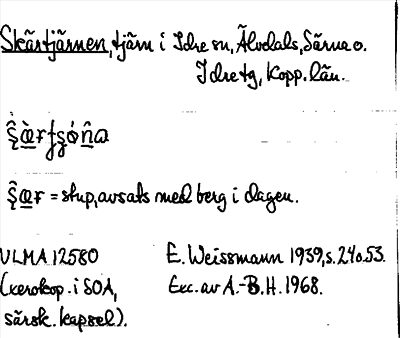 Skärtjärnen, tjärn i Idre sn, Älvdals, Särna o.
Idre tg, Kopp. län.
= stup, avsats med berg i dagen.
ULMA 12580 E. Weissmann 1939, s. 24 o. 53.
(xerokop. i SOA, Exc. av A.-B.H. 1968.
särsk. kapsel).